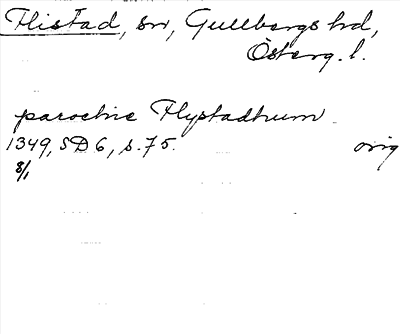 Flistad, sn, Gullbergs hd,
Österg. l.
parochie Flystadhum
1349, SD 6, s. 75. orig
8/1